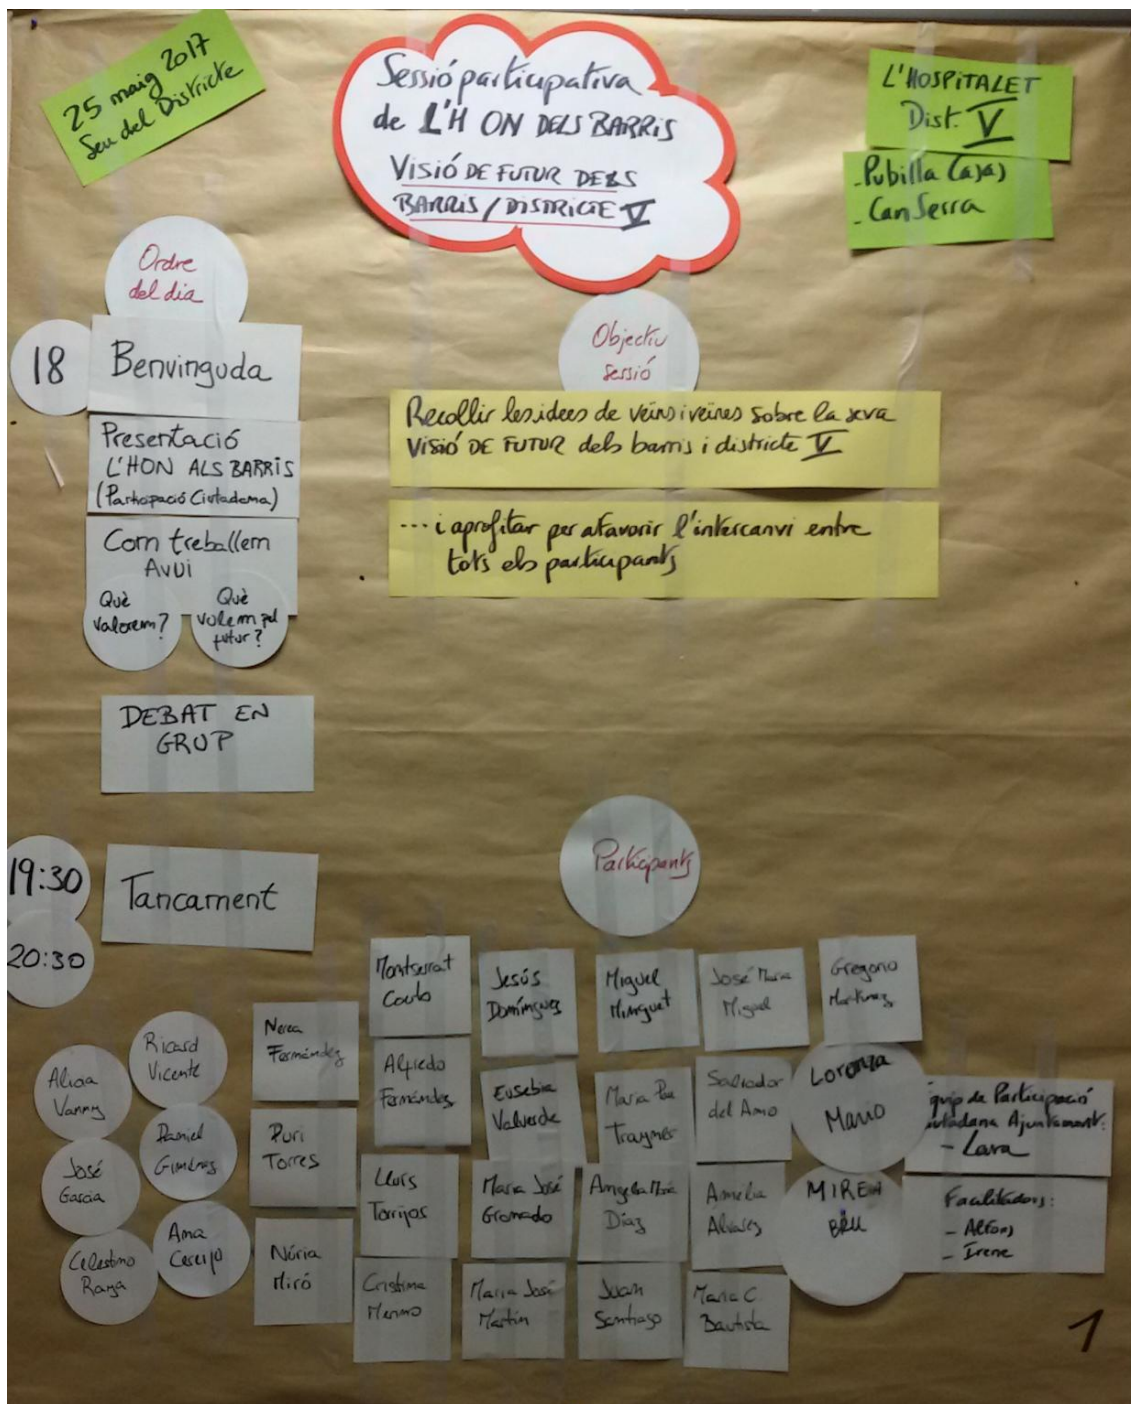 25 maig 2017
Seu del Districte
Sessió participativa
de L'H ON DELS BARRIS
VISIÓ DE FUTUR DELS
BARRIS / DISTRICTE V
L'HOSPITALET
Dist. V
- Pubilla Casas
- Can Serra
Ordre
del dia
18
Benvinguda
Presentació
L'HON ALS BARRIS
(Participació Ciutadana)
Com treballem
AVUI
Què
valorem?
Què
volem pel
futur?
DEBAT EN
GRUP
19:30
Tancament
20:30
Objectiu
sessió
Recollir les idees de veïns i veïnes sobre la seva
VISIÓ DE FUTUR dels barris i districte V
... i aprofitar per afavorir l'intercanvi entre
tots els participants
Participants
Montserrat
Jesús
Domínguez
Miguel
Minguet
José Maria
Miguel
Gregorio
Martínez
Nerea
Fernández
Alfredo
Fernández
Eusebia
Valverde
Maria Pau
Trayner
Salvador
del Amo
Lorenza
Mario
Ricard
Vicente
Alicia
Vanny
Daniel
Giménez
José
Garcia
Ana
Celestino
Raya
Puri
Torres
Núria
Miró
Lluís
Torrijos
Cristina
Merino
Maria José
Granado
Maria José
Martín
Angela Maria
Díaz
Juan
Santiago
Amelia
Alvarez
Maria C
Bautista
MIREN
BRU
quip de Participació
utadana Ajuntament:
- Lara
Facilitadors:
- Alfons
- Irene
1